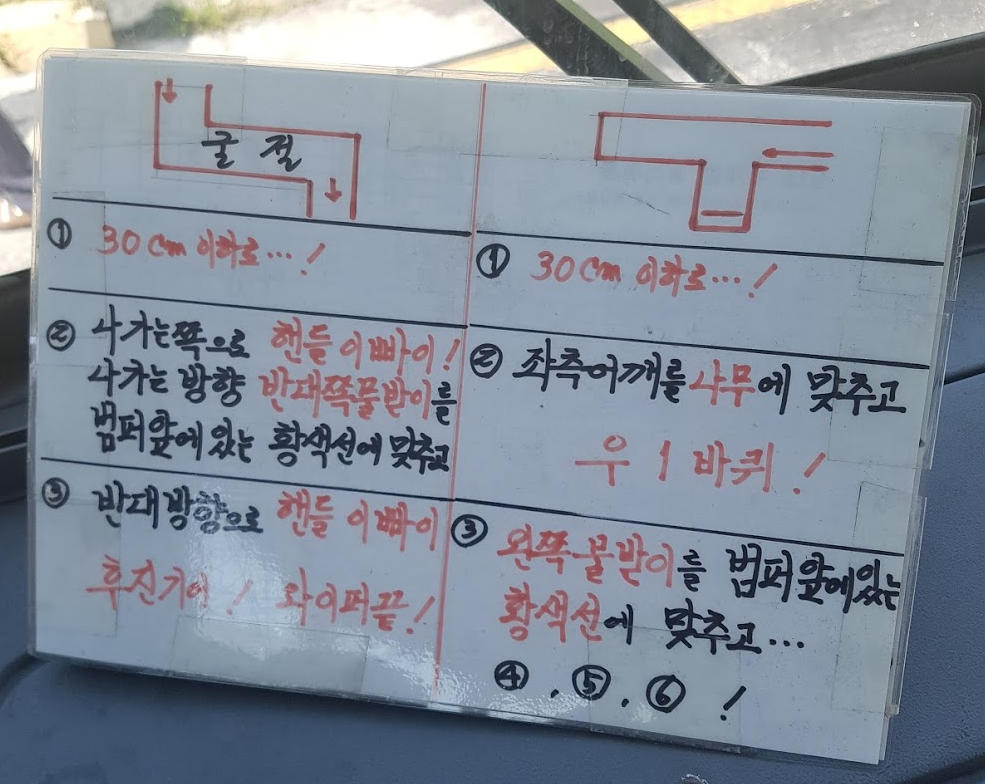 굴절
① 30cm 이하로…!
② 나가는쪽으로 핸들 이빠이!
나가는 방향 반대쪽물받이를
범퍼앞에 있는 황색선에 맞추고
③ 반대방향으로 핸들 이빠이
후진기어! 와이퍼끝!
① 30cm 이하로…!
② 좌측어깨를 나무에 맞추고
우 1 바퀴!
③ 왼쪽물받이를 범퍼앞에있는
황색선에 맞추고…
④, ⑤, ⑥ !